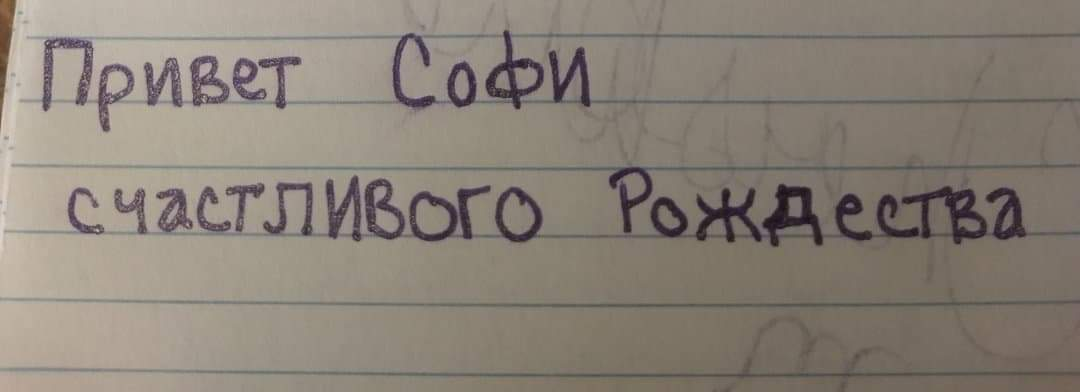 Привет Софи
счастливого Рождества